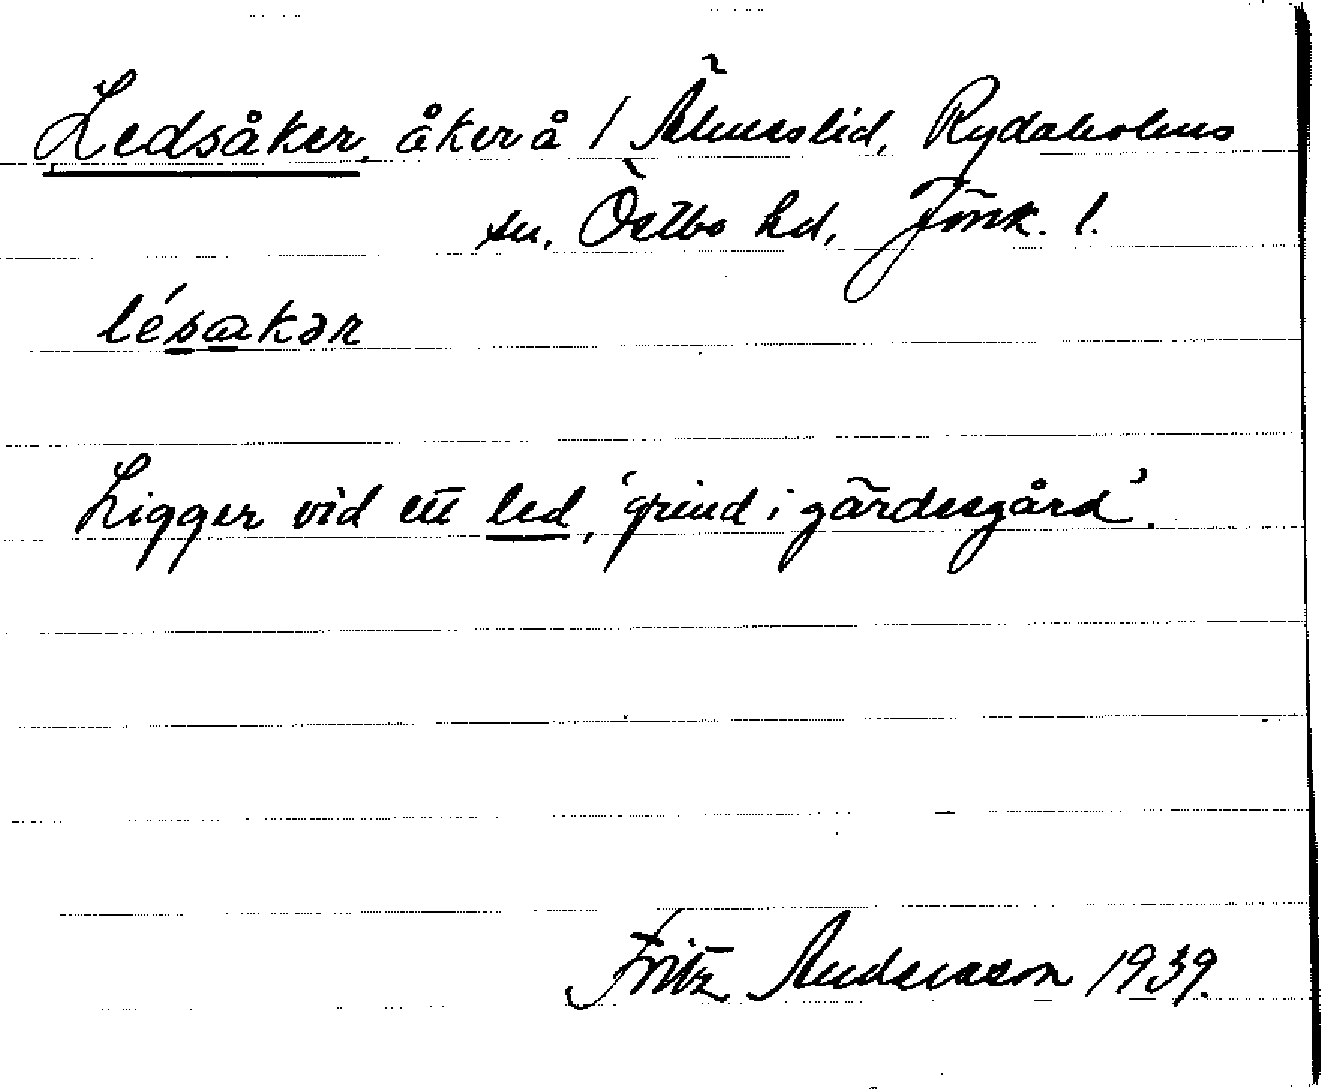 Ledsåker, åker å / Älmeslid, Rydaholms
sn, Östbo hd, Jönk. l.
lésakər
Ligger vid ett led, 'grind i gärdesgård'.
Fritz Andersson 1939.